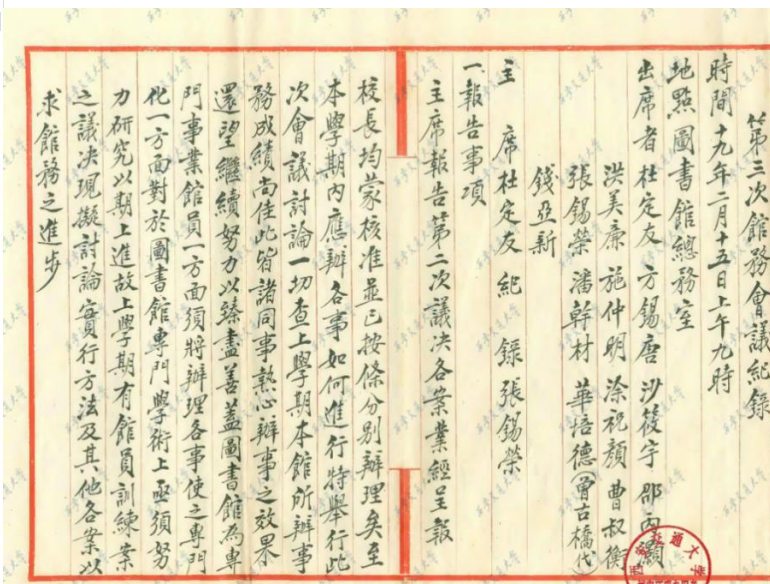 第三次館務會議紀錄
時間 十九年二月十五日上午九時
地點圖書館總務室
出席者杜定友 方錫唐 沙筱宇 鄒內顯
洪美廉 施仲明 涂祝顏 曹叔衡
張錫榮 潘幹材 華培德(曾古橋代
錢亞新
主 席杜定友 紀 錄張錫榮
一、報告事項
主席報告第二次議決各案業經呈報
校長均蒙核准並已按條分別辦理矣至
本學期內應辦各事如何進行特舉行此
次會議討論一切查上學期本館所辦事
務成績尚佳此皆諸同事熱心辦事之效果
還望繼續努力以臻盡善蓋圖書館為專
門事業館員一方面須將辦理各事使之專門
化一方面對於圖書館專門學術上亟須努
力研究以期上進故上學期有館員訓練案
之議決現擬討論實行方法及其他各案以
求館務之進步
西安交通大學